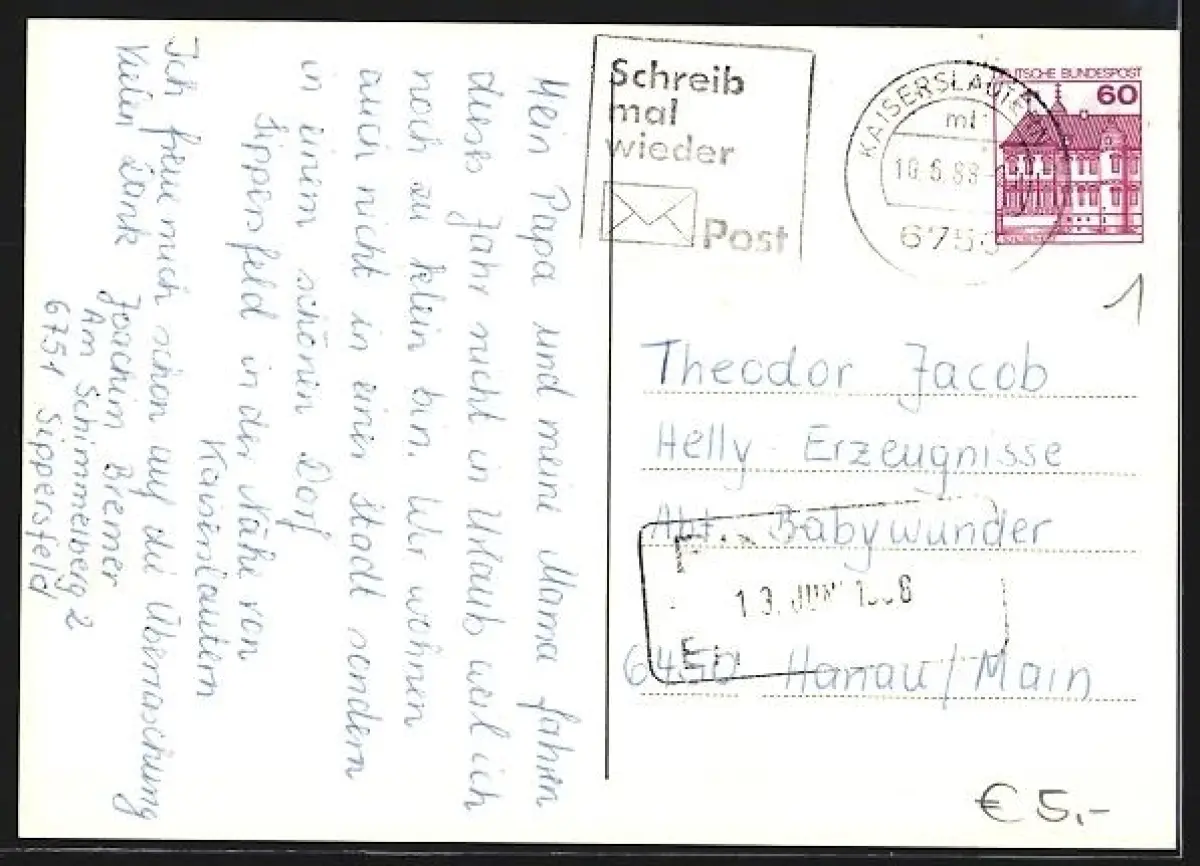 Mein Papa und meine Mama fahren
dieses Jahr nicht in Urlaub weil ich
noch zu klein bin. Wir wohnen
auch nicht in einer Stadt sondern
in einem schönen Dorf
Sippersfeld in der Nähe von
Kaiserslautern
Ich freue mich schon auf die Überraschung
Vielen Dank
Joachim Bremer
Am Schimmelberg 2
6751 Sippersfeld
Schreib
mal
wieder
Post
KAISERSLAUTERN
10.6.88
675
DEUTSCHE BUNDESPOST
60
1
Theodor Jacob
Helly Erzeugnisse
Abt. Babywunder
13. JUN 1988
6450 Hanau/Main
€ 5,-